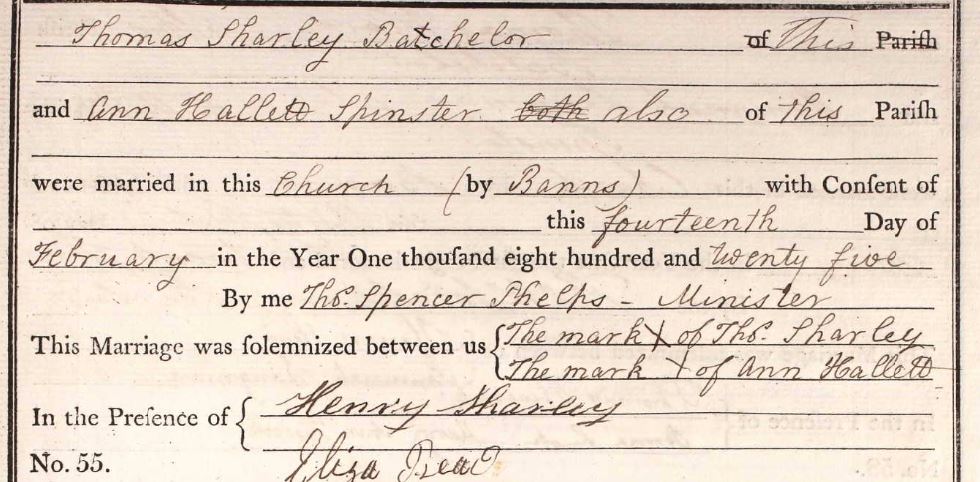 Thomas Sharley Batchelor of This Parish
and Ann Hallett Spinster both also of This Parish
were married in this Church (by Banns) with Consent of
this fourteenth Day of
February in the Year One thousand eight hundred and twenty five
By me Thos. Spencer Phelps - Minister
This Marriage was solemnized between us { The mark X of Thos. Sharley
The mark X of Ann Hallett
In the Presence of { Henry Sharley
No. 55. Eliza